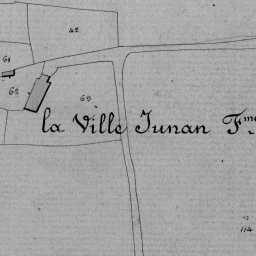 42
61
62
62
la Ville Junan F.me
114